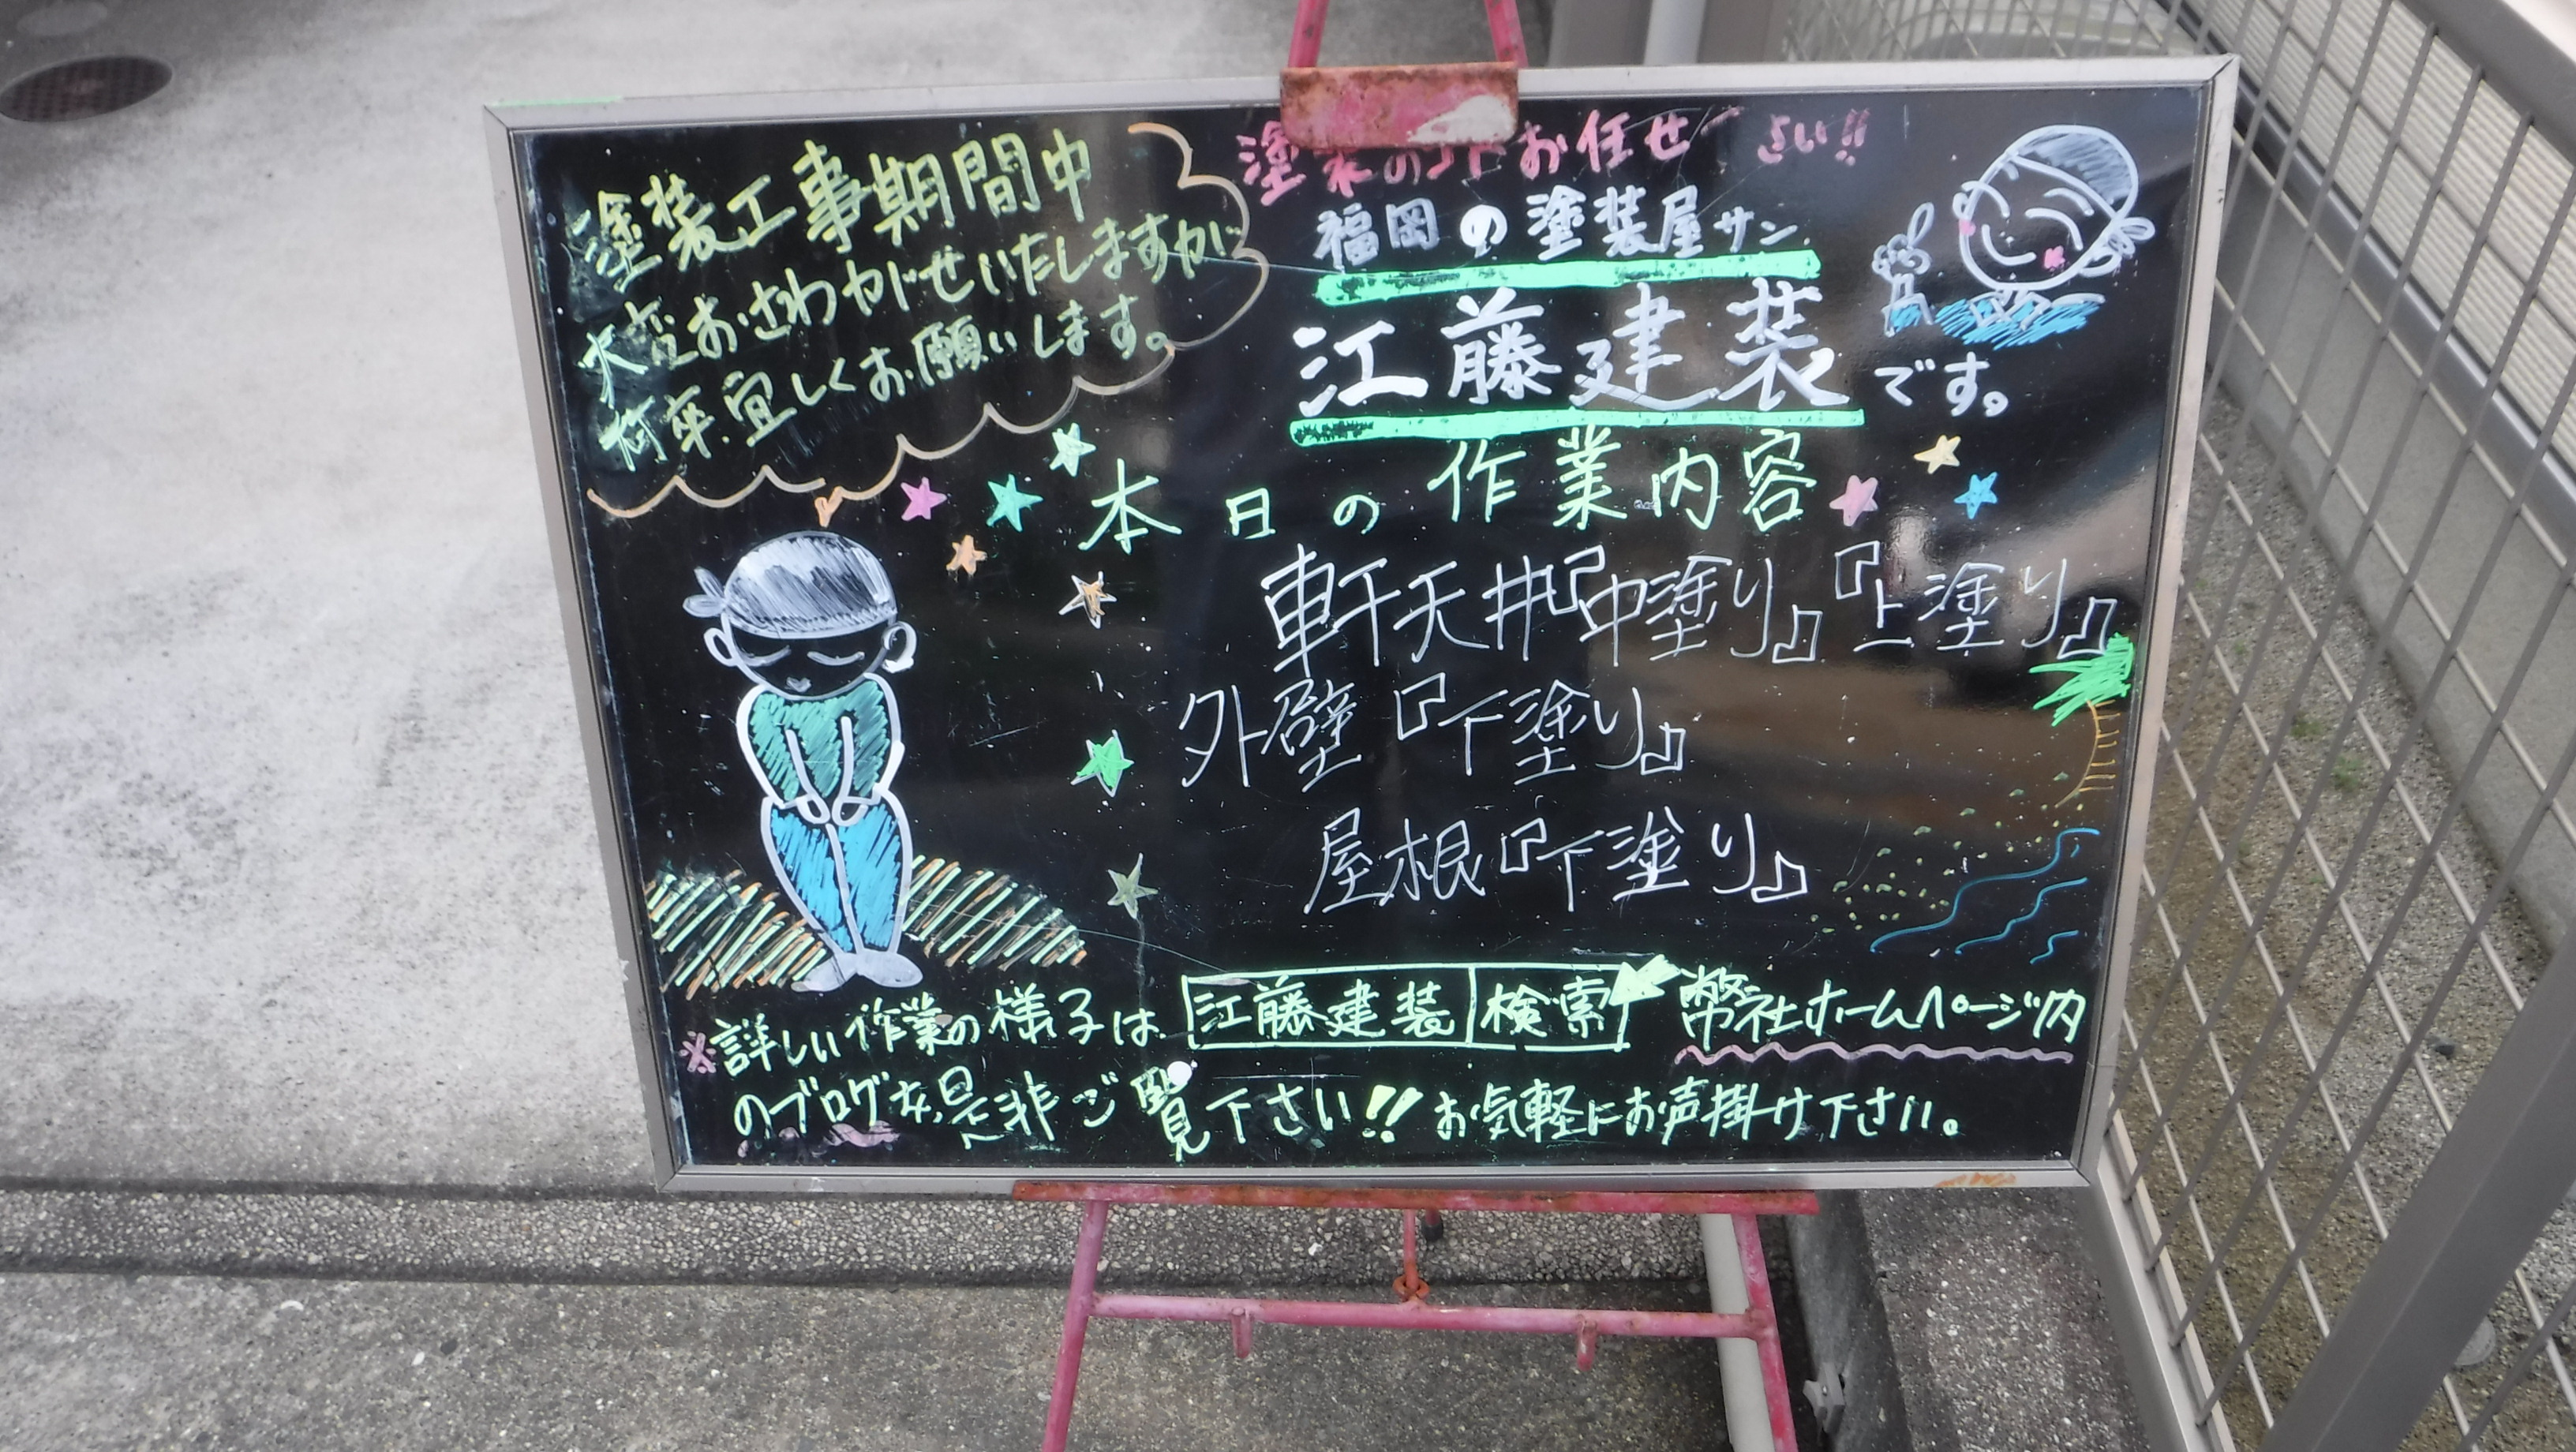 塗装工事期間中
大変おさわがせいたしますが
何卒宜しくお願いします。
塗装の お任せ さい!!
福岡の塗装屋サン
江藤建装です。
本日の作業内容
軒天井『中塗り』『上塗り』
外壁『下塗り』
屋根『下塗り』
※詳しい作業の様子は 江藤建装 検索 弊社ホームページ内
のブログを是非ご覧下さい!! お気軽にお声掛け下さい。